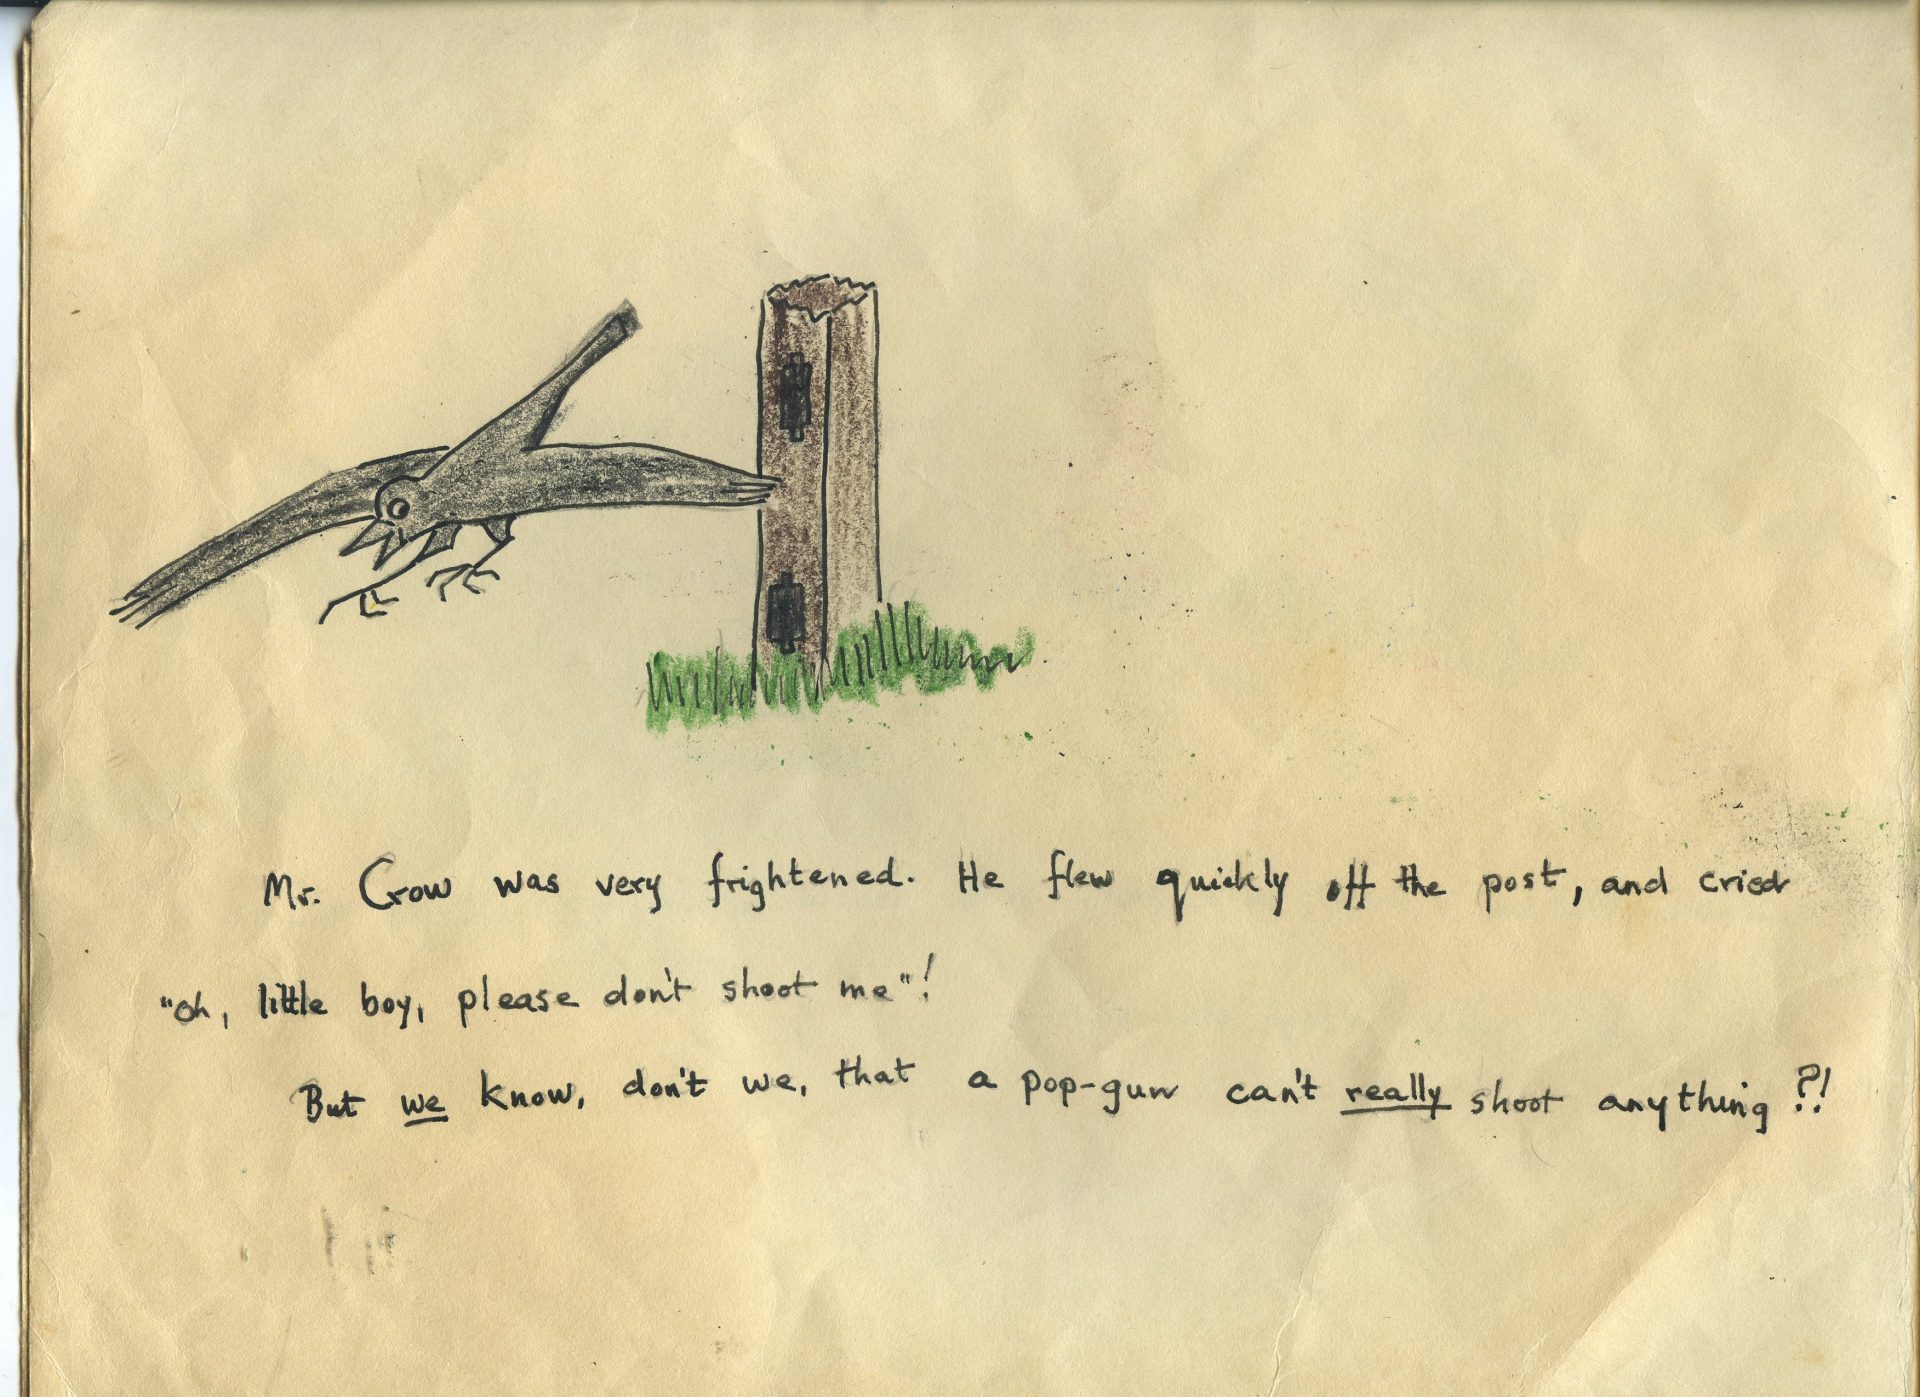 Mr. Crow was very frightened. He flew quickly off the post, and cried
"oh, little boy, please don't shoot me"!
But we know, don't we, that a pop-gun can't really shoot anything?!